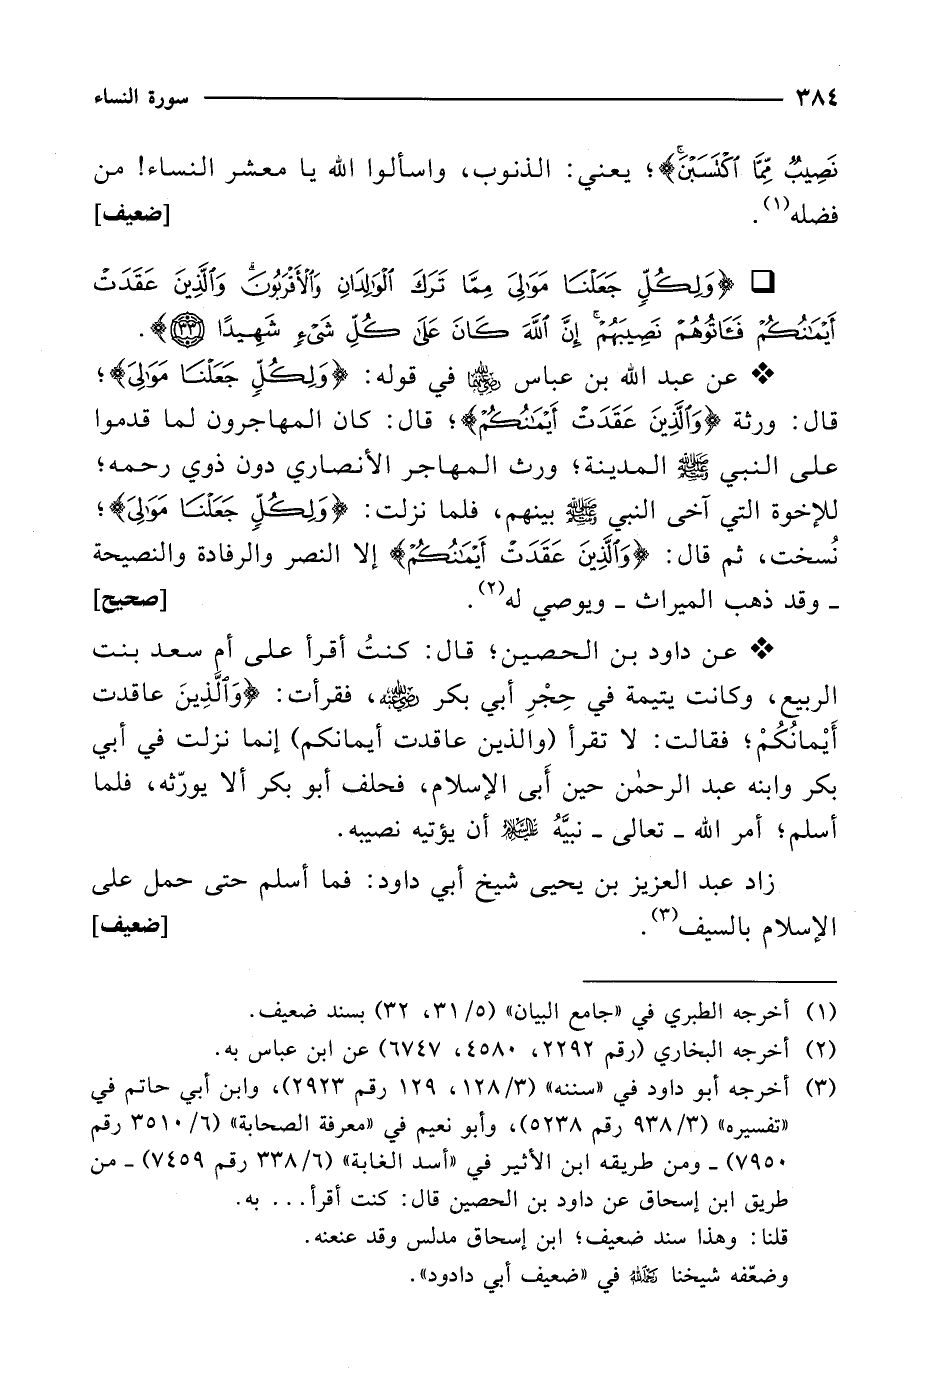 ٣٨٤ سورة النساء
نَصِيبٌ مِّمَّا ٱكْتَسَبْنَۚ﴾؛ يعني: الذنوب، واسألوا الله يا معشر النساء! من
فضله(١). [ضعيف]
❑ ﴿وَلِكُلٍّ جَعَلْنَا مَوَٰلِيَ مِمَّا تَرَكَ ٱلْوَٰلِدَانِ وَٱلْأَقْرَبُونَۚ وَٱلَّذِينَ عَقَدَتْ
أَيْمَٰنُكُمْ فَـَٔاتُوهُمْ نَصِيبَهُمْۚ إِنَّ ٱللَّهَ كَانَ عَلَىٰ كُلِّ شَىْءٍ شَهِيدًا ﴿٣٣﴾﴾.
❖ عن عبد الله بن عباس رضي الله عنهما في قوله: ﴿وَلِكُلٍّ جَعَلْنَا مَوَٰلِيَ﴾؛
قال: ورثة ﴿وَٱلَّذِينَ عَقَدَتْ أَيْمَٰنُكُمْ﴾؛ قال: كان المهاجرون لما قدموا
على النبي ﷺ المدينة؛ ورث المهاجر الأنصاري دون ذوي رحمه؛
للإخوة التي آخى النبي ﷺ بينهم، فلما نزلت: ﴿وَلِكُلٍّ جَعَلْنَا مَوَٰلِيَ﴾؛
نُسخت، ثم قال: ﴿وَٱلَّذِينَ عَقَدَتْ أَيْمَٰنُكُمْ﴾ إلا النصر والرفادة والنصيحة
ـ وقد ذهب الميراث ـ ويوصي له(٢). [صحيح]
❖ عن داود بن الحصين؛ قال: كنتُ أقرأ على أم سعد بنت
الربيع، وكانت يتيمة في حِجْرِ أبي بكر رضي الله عنه، فقرأت: ﴿وَٱلَّذِينَ عاقدت
أَيْمانُكُمْ؛ فقالت: لا تقرأ (والذين عاقدت أيمانكم) إنما نزلت في أبي
بكر وابنه عبد الرحمٰن حين أَبى الإسلام، فحلف أبو بكر ألا يورّثه، فلما
أسلم؛ أمر الله ـ تعالى ـ نبيَّهُ عليه السلام أن يؤتيه نصيبه.
زاد عبد العزيز بن يحيى شيخ أبي داود: فما أسلم حتى حمل على
الإسلام بالسيف(٣). [ضعيف]
(١) أخرجه الطبري في «جامع البيان» (٥/ ٣١، ٣٢) بسند ضعيف.
(٢) أخرجه البخاري (رقم ٢٢٩٢، ٤٥٨٠، ٦٧٤٧) عن ابن عباس به.
(٣) أخرجه أبو داود في «سننه» (٣/ ١٢٨، ١٢٩ رقم ٢٩٢٣)، وابن أبي حاتم في
«تفسيره» (٣/ ٩٣٨ رقم ٥٢٣٨)، وأبو نعيم في «معرفة الصحابة» (٦/ ٣٥١٠ رقم
٧٩٥٠) ـ ومن طريقه ابن الأثير في «أسد الغابة» (٦/ ٣٣٨ رقم ٧٤٥٩) ـ من
طريق ابن إسحاق عن داود بن الحصين قال: كنت أقرأ... به.
قلنا: وهذا سند ضعيف؛ ابن إسحاق مدلس وقد عنعنه.
وضعّفه شيخنا رحمه الله في «ضعيف أبي دادود».